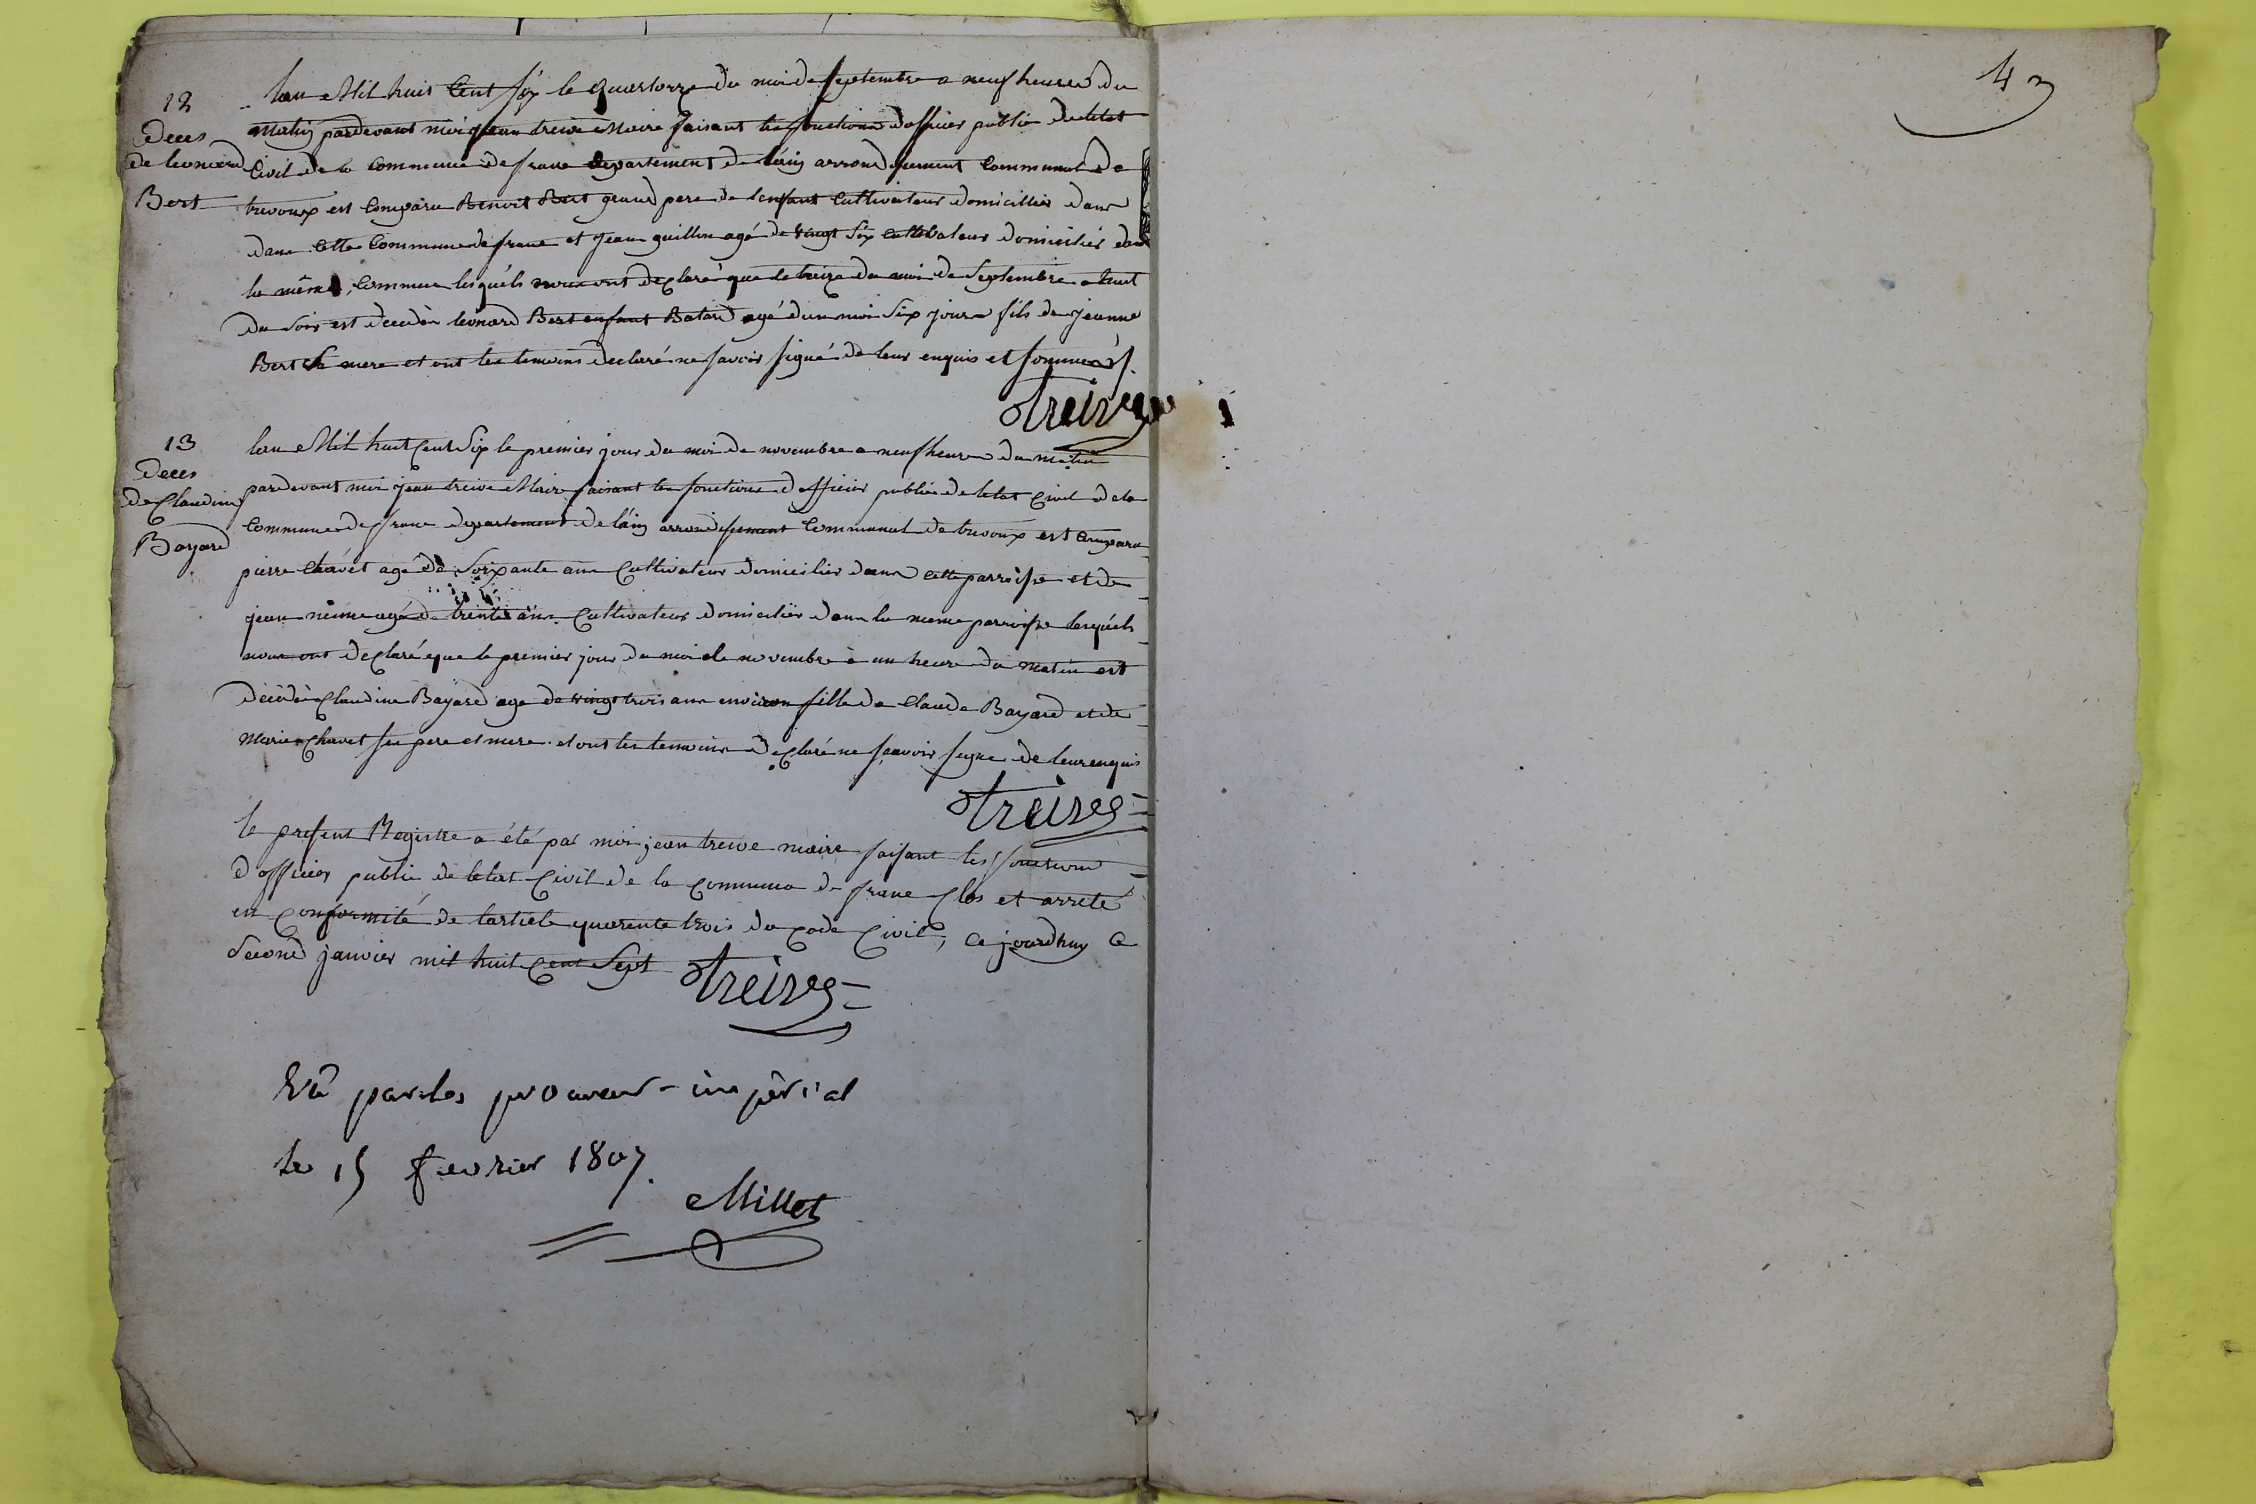 12
Deces
de leonard
Bert
lan Mil huit Cent six le quatorze du moi de septembre a neuf heures du
Matin pardevant moi jean treive Maire faisant les fonctions dofficier public de letat
Civil de la Commune de frans departement de láin arrondissement Communal de
trevoux est Comparu Benoit Bert grand pere de lenfant Cultivateur domicilier dans
dans Cette Commune de frans et jean guillon agé de vingt six Cultivateur domicilié dans
la même Commune lesquéls nous ont declaré que le treize du moi de Septembre a huit
du soir est decedé leonard Bert enfant Batard agé dun moi six jours fils de jeanne
Bert sa mere et ont les temoins declaré ne savoir signé de leur enquis et sommés
treive
13
Deces
de Claudine
Bayard
lan Mil huit Cent Six le premier jour du moi de novembre a neuf heure du matin
pardevant moi jean treive Maire faisant les fonctions dofficier public de letat Civil de la
Commune de frans departement de láin arrondissement Communal de trevoux est Comparu
pierre Chavet agé de Soixante ans Cultivateur domicilier dans cette parroisse et de
jean agé de trente ans Cultivateur domicilier dans la meme parroisse lesquéls
nous ont declaré que le premier jour du moi de novembre à un heure du matin est
décédé Claudine Bayard age de vingt trois ans environ fille de Claude Bayard et de
Marie Chavet ses pere et mere et ont les temoins declaré ne scavoir signe de leur enquis
treive
le present Registre a été par moi jean treive maire faisant les fonctions
d'officier public de letat Civil de la Commune de frans Clos et arreté
en Conformité de larticle quarente trois du Code Civil, ce jourdhuy le
Second janvier mil huit Cent Sept treive
Vû par le procureur impérial
le 15 fevrier 1807.
Millet
4